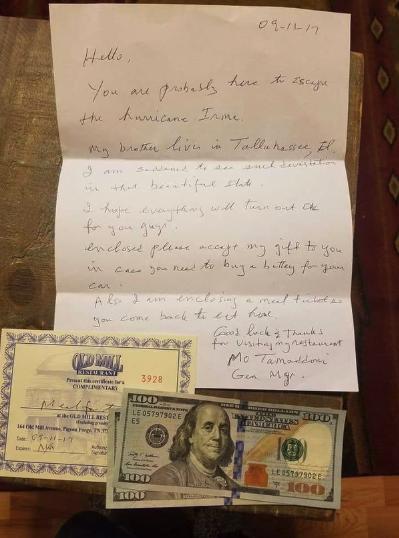 09-11-17
Hello,
You are probably here to escape
the hurricane Irma.
My brother lives in Tallahassee, FL.
I am saddened to see such devastation
in that beautiful state.
I hope everything will turn out ok
for you guys.
enclosed please accept my gift to you
in case you need to buy a battery for your
car.
Also I am enclosing a meal ticket so
you come back to eat here.
Good luck & Thanks
for visiting my restaurant
Mo Tamaddoni
Gen Mgr.
OLD MILL
RESTAURANT
Present this certificate for a
COMPLIMENTARY
3928
Meal for
at the OLD MILL REST
164 Old Mill Avenue, Pigeon Forge, T
Date: 09-11-17
Expires: N/A
100
100
LE05797902E
E5
LE05797902E
100
100
100